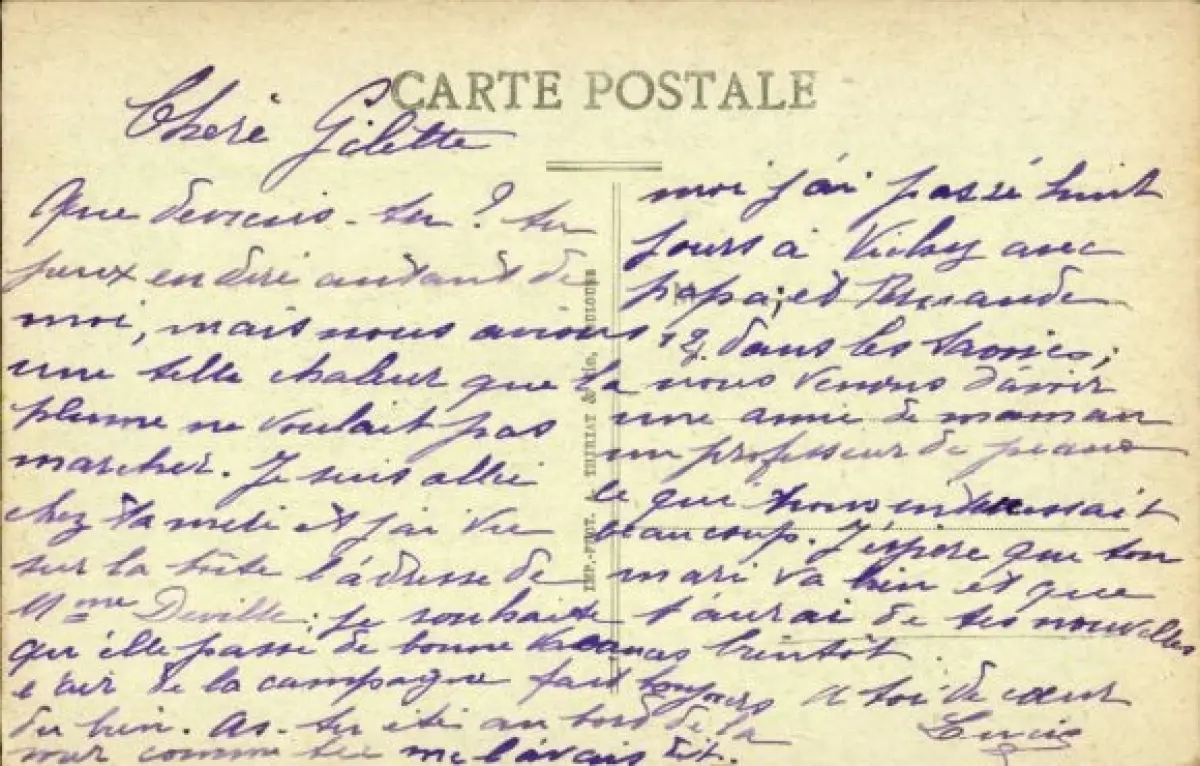 CARTE POSTALE
Cheré Gilette
Que deviens-tu ? tu
peux en diré autant de
moi, mais nous avions
une telle chaleur que la
plume ne voulait pas
marcher. Je suis allée
chez ta et j'ai vu
sur la l'adresse de
Mme Deville; je souhaite
qu'elle passé de bonne vacances
l'air de la campagne fait toujours
du bien. As-tu été au bord de la
mer comme tu me l'avais dit.
moi j'ai passé huit
jours à Vichy avec
papa; et
dans les
nous venons d'avoir
une amie de maman
un professeur de piano
ce qui nous intéressait
beaucoup. J'espère que ton
mari va bien et que
j'aurai de tes nouvelles
bientôt
a toi de cœur
IMP.-PHOT. A. THIRIAT & Cie, TOULOUSE